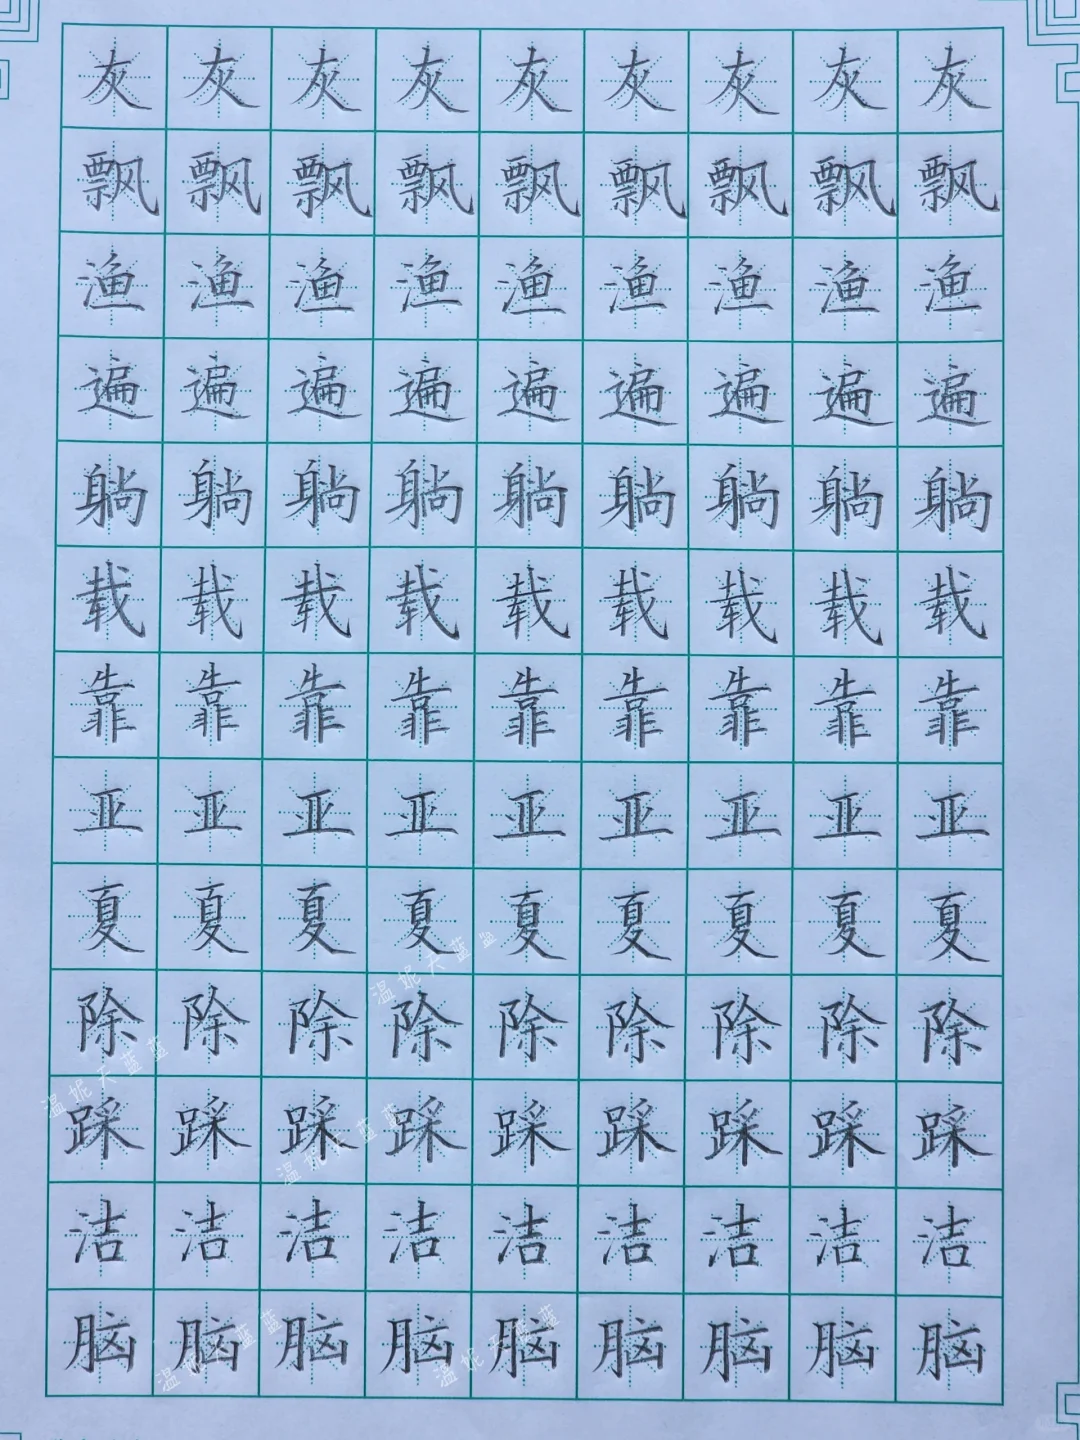 灰灰灰灰灰灰灰灰灰
飘飘飘飘飘飘飘飘飘
渔渔渔渔渔渔渔渔渔
遍遍遍遍遍遍遍遍遍
躺躺躺躺躺躺躺躺躺
载载载载载载载载载
靠靠靠靠靠靠靠靠靠
亚亚亚亚亚亚亚亚亚
夏夏夏夏夏夏夏夏夏
温妮天蓝蓝
除除除除除除除除除
温妮天蓝蓝
踩踩踩踩踩踩踩踩踩
温妮天蓝蓝
洁洁洁洁洁洁洁洁洁
脑脑脑脑脑脑脑脑脑
温妮天蓝蓝
温妮天蓝蓝